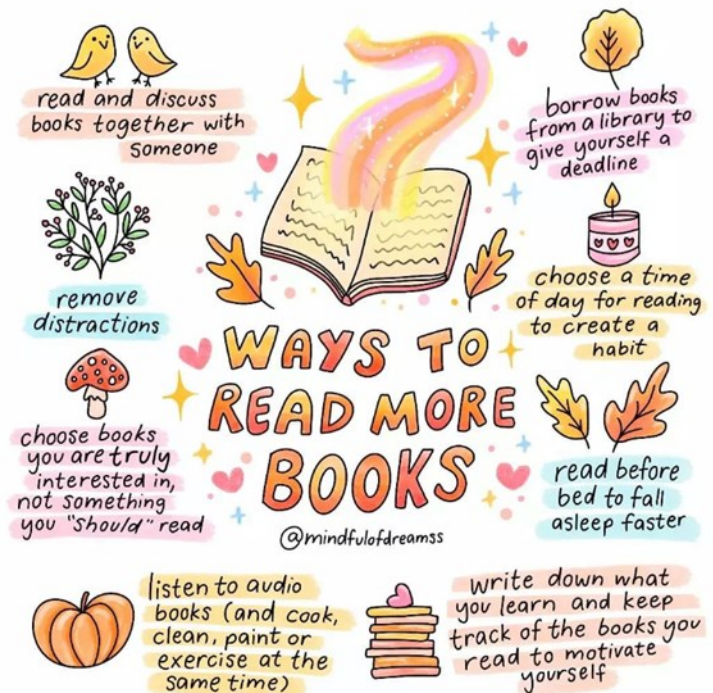 read and discuss
books together with
someone
borrow books
from a library to
give yourself a
deadline
remove
distractions
choose a time
of day for reading
to create a
habit
WAYS TO
READ MORE
BOOKS
@mindfulofdreamss
choose books
you are truly
interested in,
not something
you "should" read
read before
bed to fall
asleep faster
listen to audio
books (and cook,
clean, paint or
exercise at the
same time)
write down what
you learn and keep
track of the books you
read to motivate
yourself